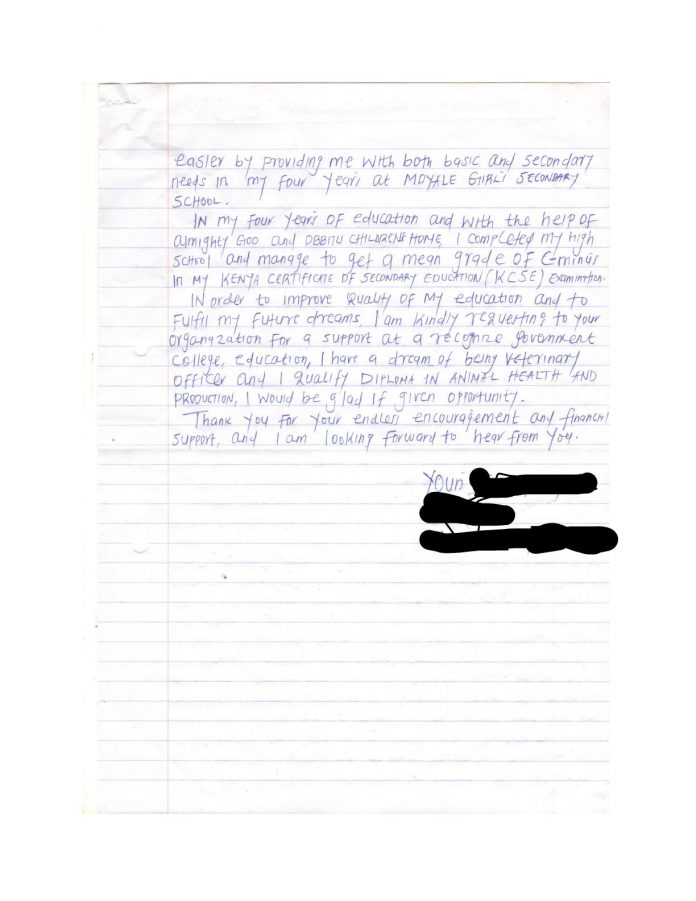 easier by providing me with both basic and secondary
needs in my four years at MOYALE GIRLS SECONDARY
SCHOOL.
IN my four years of education and with the help of
almighty GOD and OBBITU CHILDRENS HOME, I completed my high
school and manage to get a mean grade of C-minus
in my KENYA CERTIFICATE OF SECONDARY EDUCATION (KCSE) Examination.
IN order to improve quality of my education and to
Fulfil my future dreams, I am kindly requesting to your
organazation for a support at a recognize government
college, education, I have a dream of being veterinary
officer and I qualify DIPLOMA IN ANIMAL HEALTH AND
PRODUCTION, I would be glad if given opportunity.
Thank you for your endless encouragement and financial
support, and I am looking forward to hear from you.